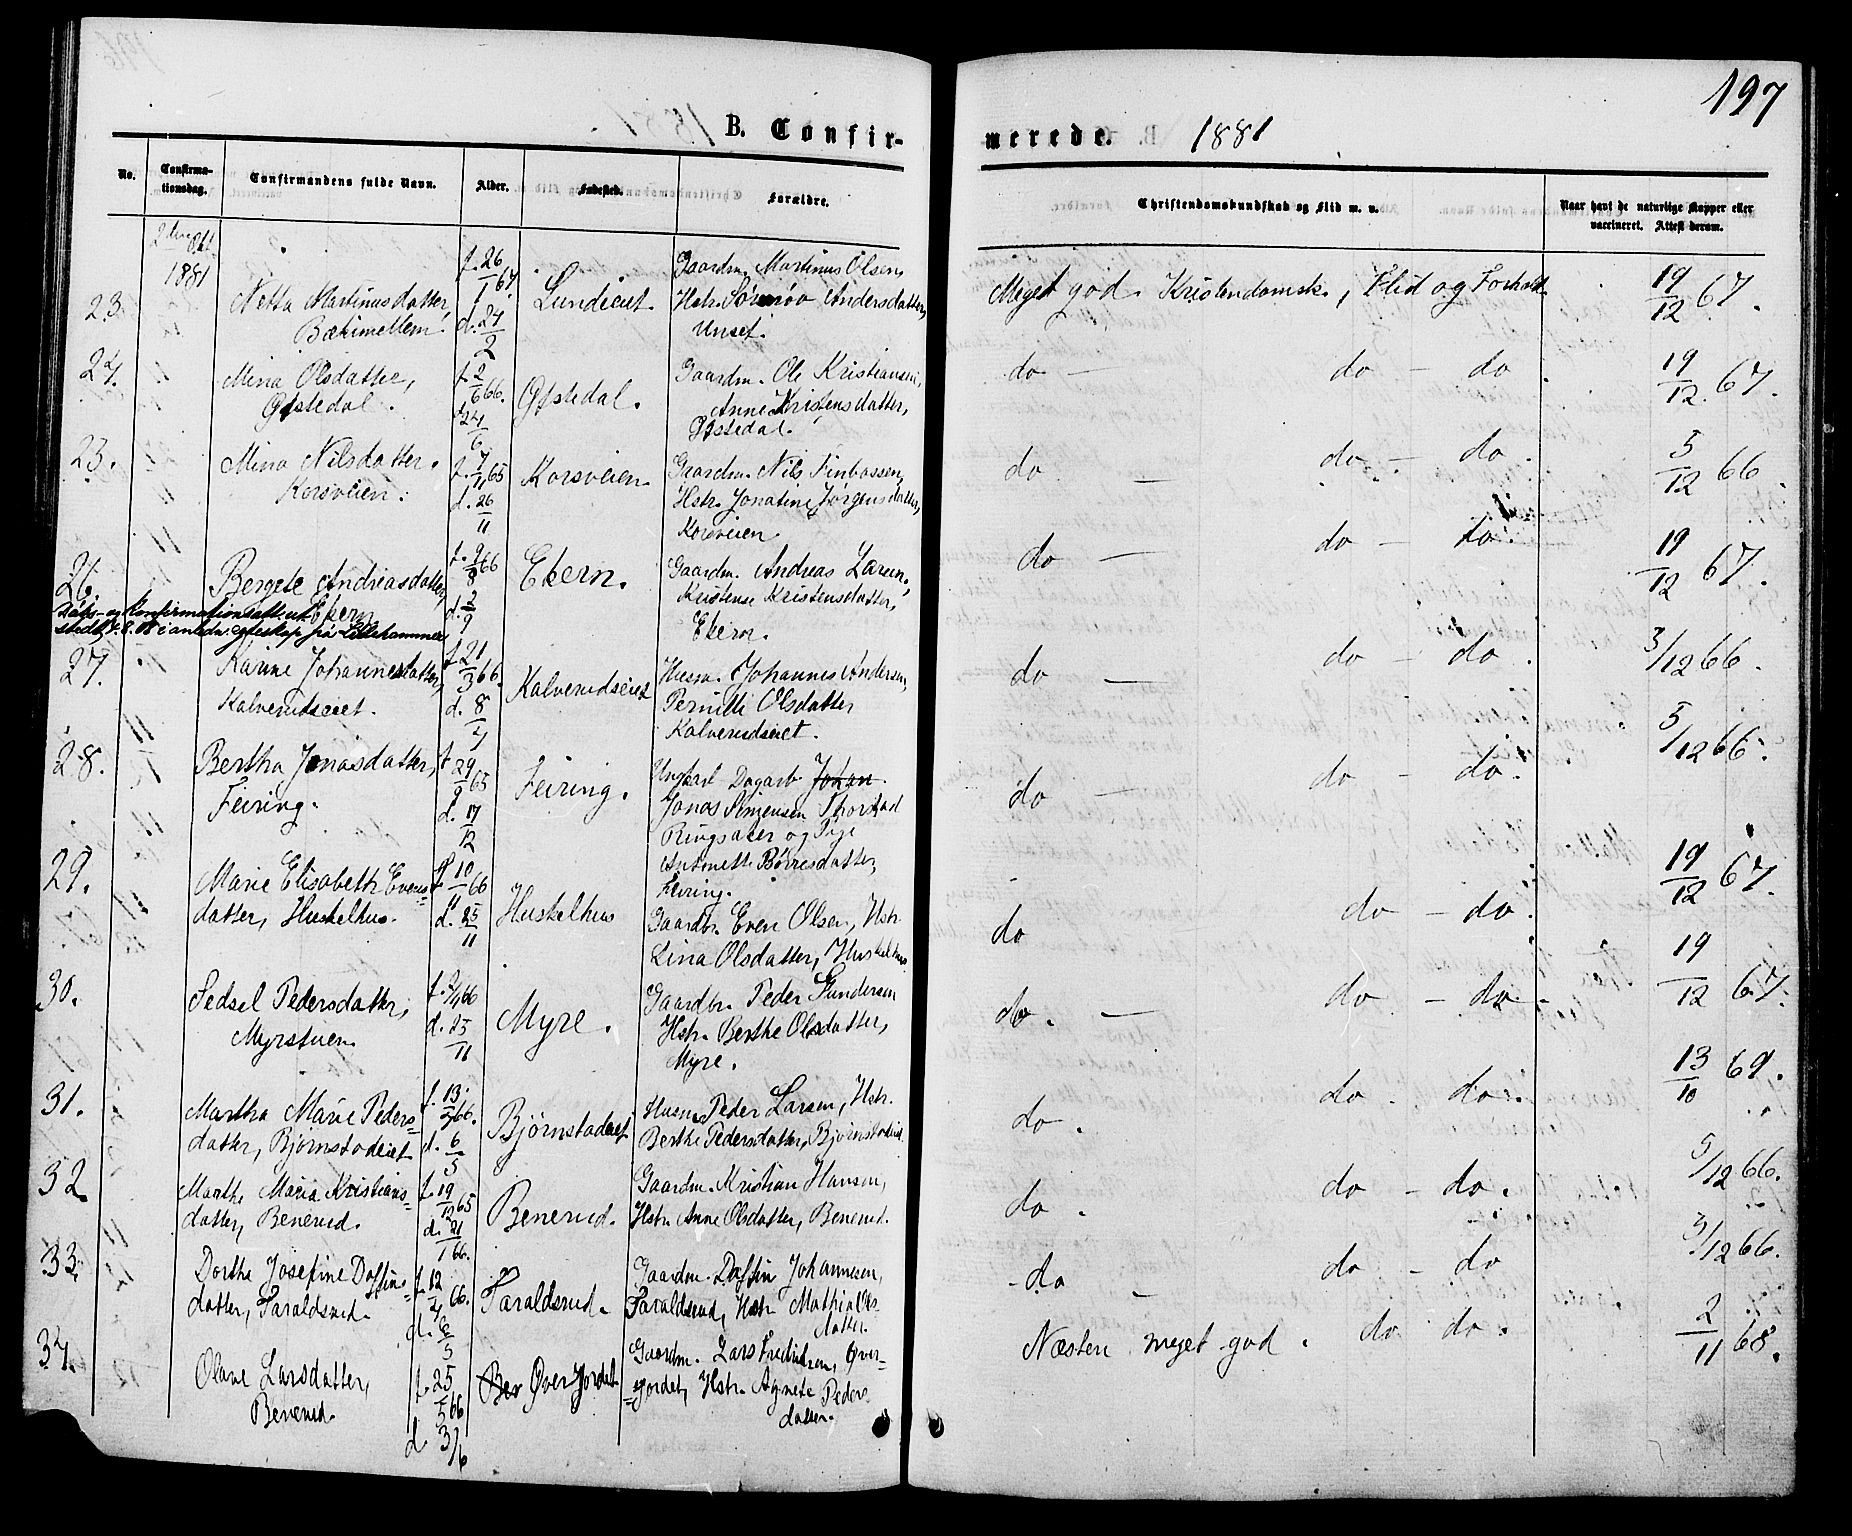 197
B. Confir-
merede. 1881
No.
Confirma-
tionsdag.
Confirmandens fulde Navn.
Alder.
Fødested.
Forældre.
Christendomskundskab og Flid m. v.
Naar havt de naturlige Kopper eller
vaccineret. Attest derom.
1881
23.
Netta Martinusdatter,
Bækimellem.
f. 26/1 67.
d. 24/2
Lundieiet
Gaardm. Martinus Olsen,
Hstr. Andersdatter,
Unset.
Meget god Kristendomsk., Flid og Forhold
19/12 67.
24.
Mina Olsdatter,
Gjstedal.
f. 2/6 66.
d. 24/6
Gjstedal.
Gaardm. Ole Kristiansen,
Anne Kristensdatter,
Gjstedal.
do — do — do.
19/12 67.
23.
Mina Nilsdatter.
Korsveien.
f. 7/11 65
d. 26/11
Korsveien.
Gaardm. Nils
Hstr. Jonatine Jørgensdatter,
Korsveien
do — do — do.
5/12 66.
26.
Bergete Andreasdatter,
Ekern
f. 9/8 66
d. 2/9
Ekern.
Gaardm. Andreas Larsen,
Kristense Kristensdatter,
Ekern.
do — do — do.
19/12 67.
Dåbs- og konfirmationsatt. utst.
egteskap på Lillehammer
27.
Karine Johannesdatter,
Kalverudseiet.
f. 21/3 66.
d. 8/4
Kalverudseiet
Husm. Johannes Andersen,
Pernille Olsdatter
Kalverudseiet.
do — do — do.
3/12 66.
28.
Bertha Jonasdatter,
Feiring.
f. 29/9 65
d. 17/12
Feiring.
Ungkarl Dagarb. Johan
Jonas Simensen
Ringsaker og Pige
Antonette Børresdatter,
Feiring.
do — do — do.
5/12 66.
29.
Marie Elisabeth Evens-
datter, Huskelhus.
f. 10/11 66
d. 25/11
Huskelhus
Gaardbr. Even Olsen, Hstr.
Lina Olsdatter, Huskelhus.
do do — do.
19/12 67.
30.
Sedsel Pedersdatter,
Myrstuen.
d. 25/11
Myre.
Gaardbr. Peder Gundersen
Hstr. Berthe Olsdatter,
Myre.
do. — do — do.
19/12 67.
31.
Martha Marie Peders-
datter, Bjørnstadeiet
d. 6/5
Bjørnstadeiet
Husm. Peder Larsen, Hstr.
Berthe Pedersdatter, Bjørnstadeiet
do. do. do.
13/10 69.
32.
Marthe Maria Kristians-
datter, Benerud.
f. 19/12 65
d. 21/1 66.
Benerud.
Gaardm. Kristian Hansen,
Hstr. Anne Olsdatter, Benerud.
do. do — do.
5/12 66.
33.
Dorthe Josefine Daffins-
datter, Faraldsrud.
f. 12/4 66.
d. 6/5
Faraldsrud.
Gaardm. Daffin Johannesen,
Faraldsrud, Hstr. Mathia Ols-
datter.
do — do — do
3/12 66.
34.
Olave Larsdatter,
Benerud.
f. 25/5 66
d. 3/6
Ben Øver Jordet
Gaardm. Lars Fredriksen, Øver-
=jordet, Hstr. Agnete Peders
datter.
Næsten meget god. do do.
2/11 68.